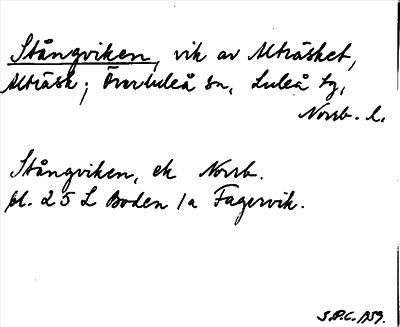 Stångviken, vik av Alträsket,
Alträsk; Överluleå sn, Luleå tg,
Norrb. l.
Stångviken, ek Norrb.
bl. 25 L Boden 1a Fagervik.
S.P.C. 1959.